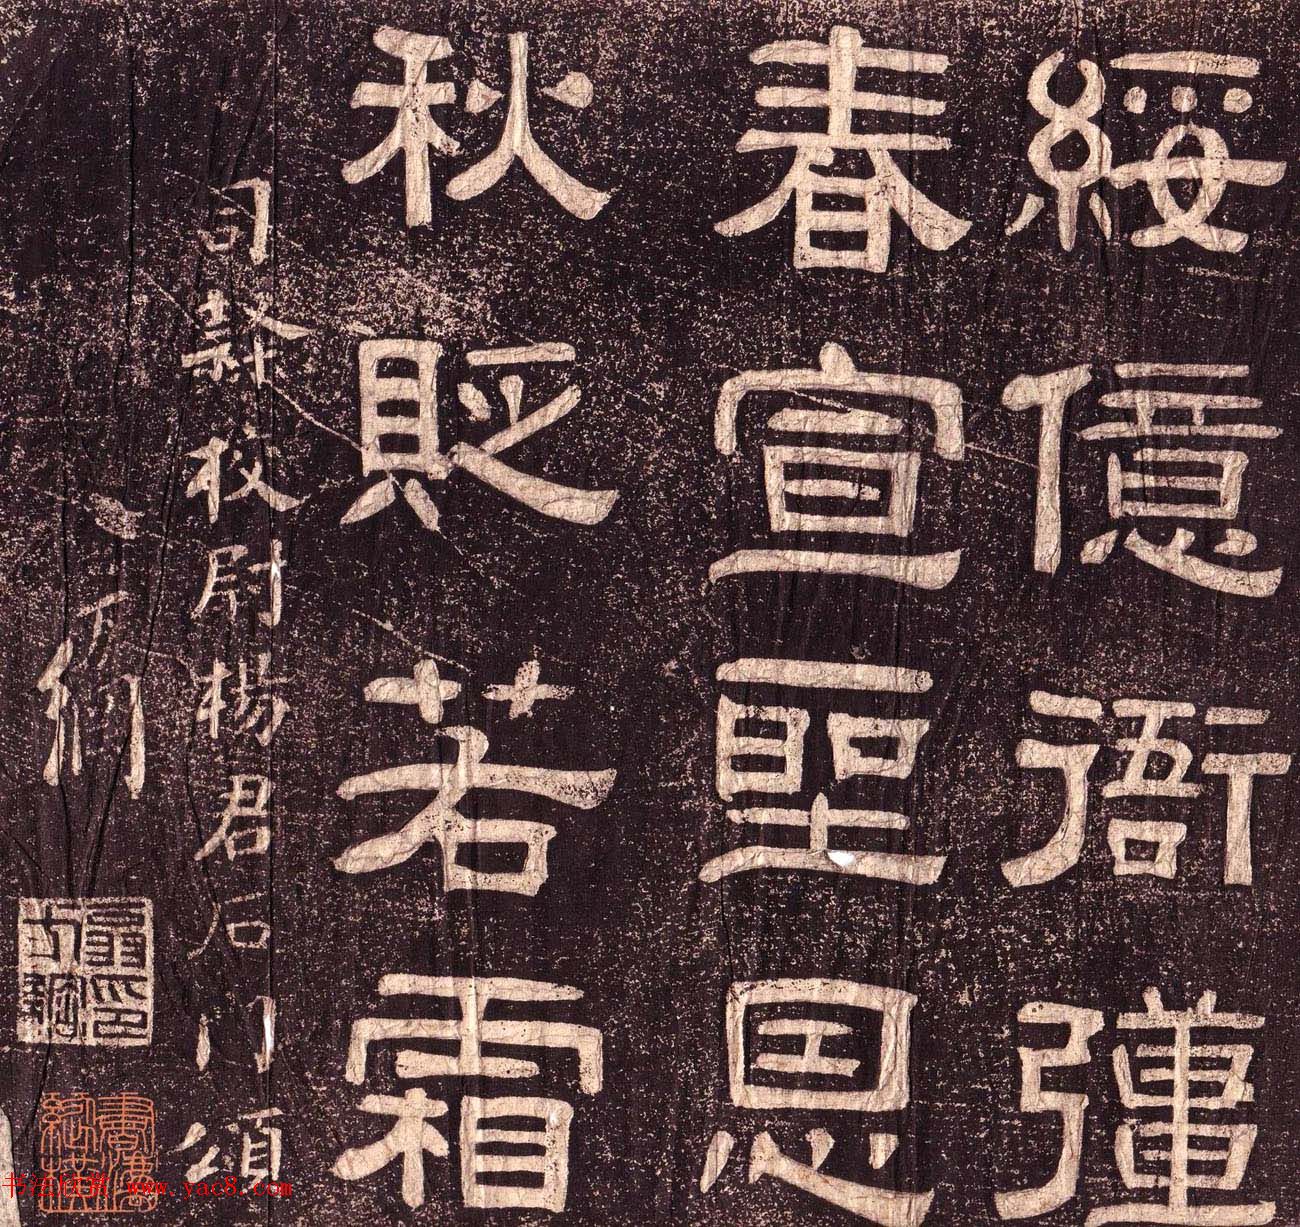 綏億衙彊
春宣聖恩
秋貶若霜
司隸校尉楊君石門頌
方綱
www.yac8.com